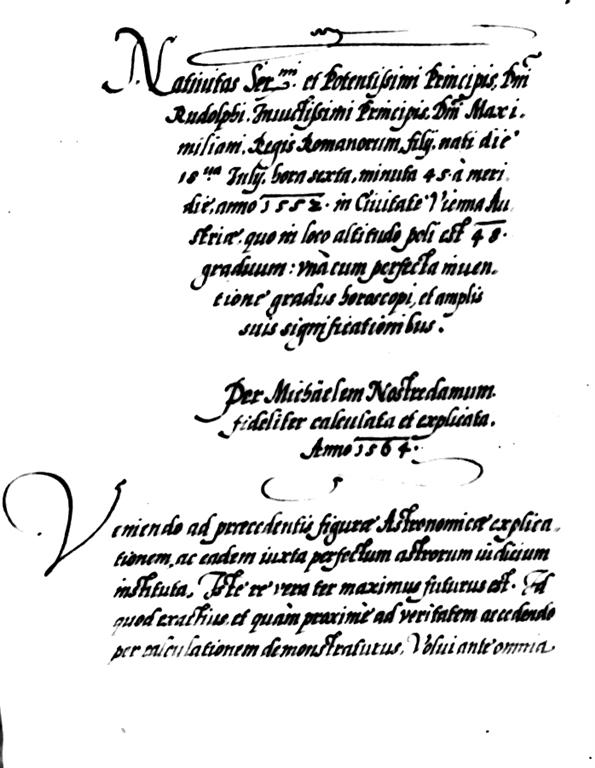 Natiuitas Ser.^mi et Potentissimi Principis, Dñi
Rudolphi, Inuictissimi Principis, Dñi Maxi.
miliani, Regis Romanorum, filij, nati die
18^ua Iulij, hora sexta, minuta 45 à meri
die, anno 1552. in Ciuitate Vienna Au
striæ, quo in loco altitudo poli est 48.
graduum: vnà cum perfecta inuen.
tione gradus horoscopi, et amplis
suis significationibus.
Per Michäelem Nostredamum
fideliter calculata et explicata.
Anno 1564.
Veniendo ad præcedentis figuræ Astronomicæ explica.
tionem, ac eadem iuxta perfectum astrorum iudicium
instituta, Iste re vera ter maximus futurus est. Id
quod exactius, et quàm proximè ad veritatem accedendo
per calculationem demonstraturus, Volui ante omnia